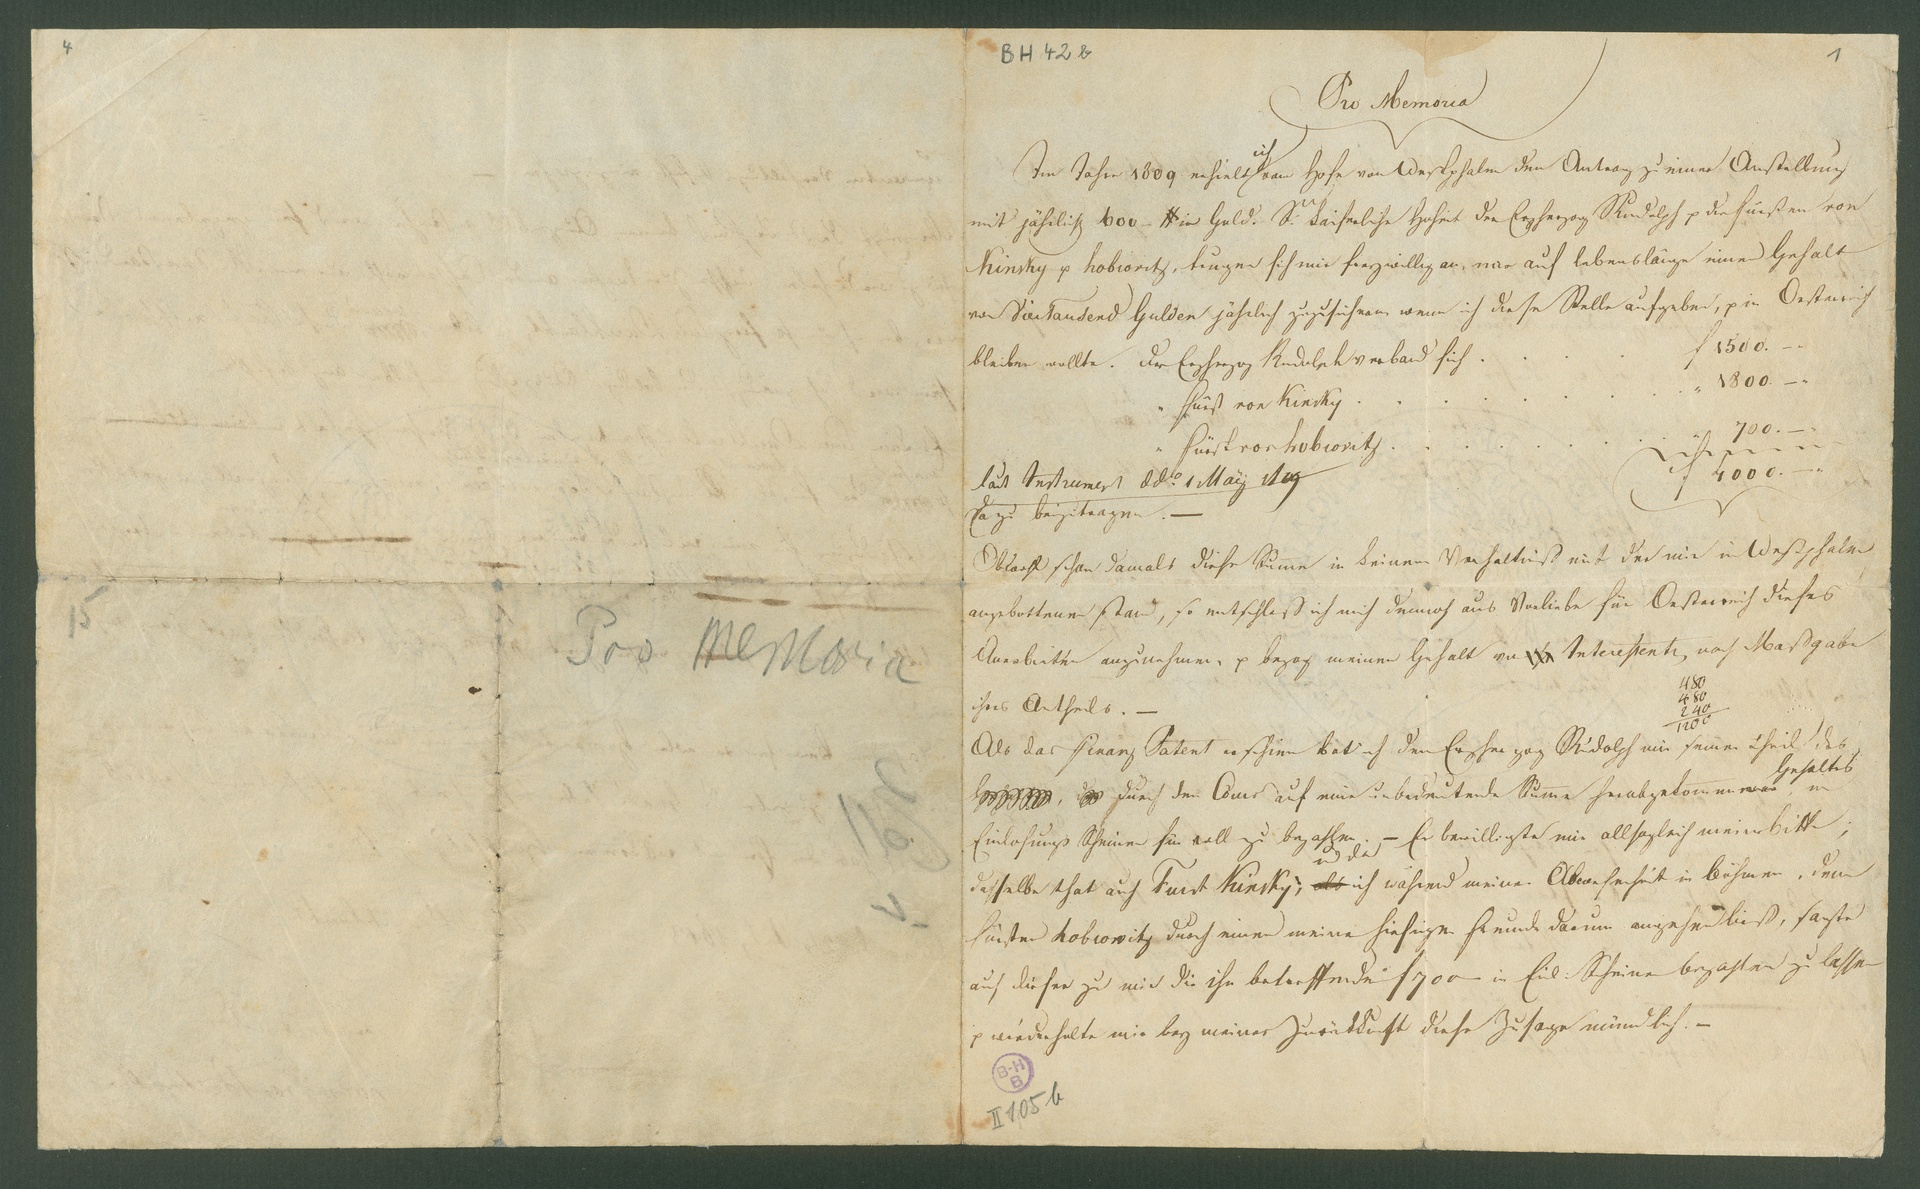 4
15
Pro Memoria
BH 42 b
1
Pro Memoria
ich
Im Jahre 1809 erhielt vom Hofe von Westphalen den Antrag zu einer Anstellung
mit jährlich 600 — # in Gold. Se. Kaiserliche Hoheit der Erzherzog Rudolph u die Fürsten von
Kinsky u Lobkowitz, trugen sich mir freywillig an, mir auf lebenslänge einen Gehalt
von Viertausend Gulden jährlich zuzusichern wenn ich diese Stelle aufgeben, u in Oesterreich
bleiben wollte. Der Erzherzog Rudolph verband sich . . . . f 1500. —
" Fürst von Kinsky . . . . . . . . " 1800. —
" Fürst von Lobkowitz . . . . . . . " 700. —
f 4000. —
laut Instrument ddo. 1 May 1809
dazu beyzutragen. —
Obwohl schon damals diese Summe in keinem Verhältniß mit der mir in Westphalen
angebottenen stand, so entschloß ich mich dennoch aus Vorliebe für Oesterreich dieses
Anerbieten anzunehmen, u bezog meinen Gehalt von Interessenten nach Maßgabe
ihres Antheils. —
480
480
240
1200
Als das Finanz Patent erschien bat ich den Erzherzog Rudolph mir seinen Theil des
Gehaltes
durch den Cours auf eine unbedeutende Summe herabgekommenen in
Einlösungs Scheinen für voll zu bezahlen. — Er bewilligte mir allsogleich meine Bitte;
und da
dasselbe that auch Fürst Kinsky; als ich während meiner Abwesenheit in Böhmen, den
Fürsten Lobkowitz durch einen meiner hiesigen Freunde darum angehen ließ, sagte
auch dieser zu mir die ihn betreffende f 700 — in Einl: Scheinen bezahlen zu lassen
u wiederholte mir bey meiner Zurückkunft diese Zusage mündlich. —
B-H
B
II 105 b